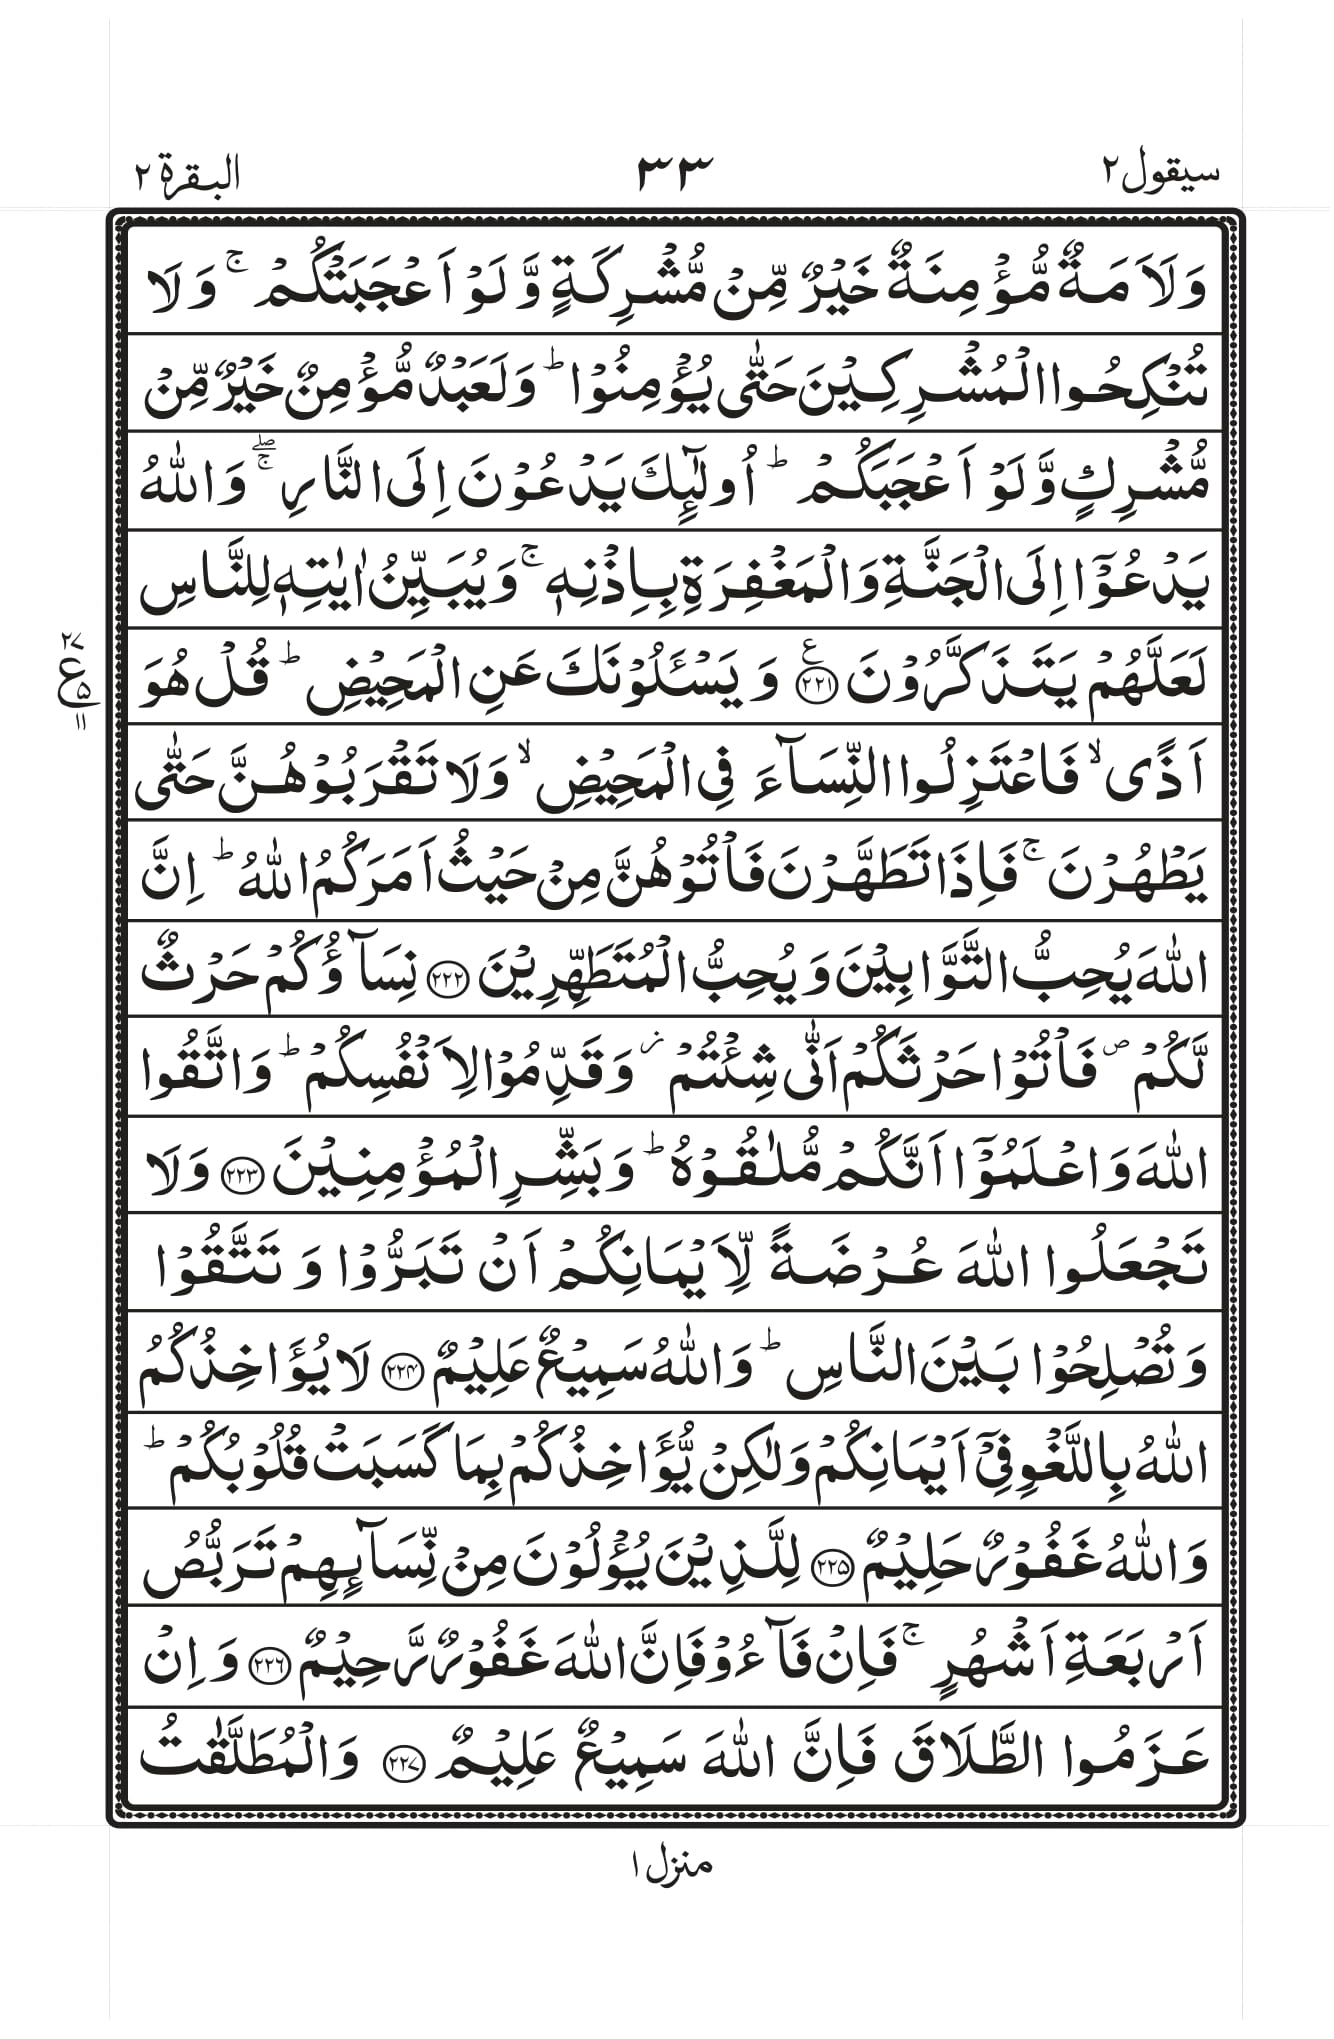 سيقول ٢
٣٣
البقرة ٢
وَلَاَمَةٌ مُّؤۡمِنَةٌ خَيۡرٌ مِّنۡ مُّشۡرِكَةٍ وَّلَوۡ اَعۡجَبَتۡكُمۡ ۚ وَلَا
تُنۡكِحُوا الۡمُشۡرِكِيۡنَ حَتّٰى يُؤۡمِنُوۡا ؕ وَلَعَبۡدٌ مُّؤۡمِنٌ خَيۡرٌ مِّنۡ
مُّشۡرِكٍ وَّلَوۡ اَعۡجَبَكُمۡ ؕ اُولٰٓٮِٕكَ يَدۡعُوۡنَ اِلَى النَّارِ ۖۚ وَاللّٰهُ
يَدۡعُوۡٓا اِلَى الۡجَنَّةِ وَالۡمَغۡفِرَةِ بِاِذۡنِهٖ ۚ وَيُبَيِّنُ اٰيٰتِهٖ لِلنَّاسِ
لَعَلَّهُمۡ يَتَذَكَّرُوۡنَ ع ﴿۲۲۱﴾ وَيَسۡـَٔـلُوۡنَكَ عَنِ الۡمَحِيۡضِ ؕ قُلۡ هُوَ
٢٧ ع ٥ ١١
اَذًى ۙ فَاعۡتَزِلُوا النِّسَآءَ فِى الۡمَحِيۡضِ ۙ وَلَا تَقۡرَبُوۡهُنَّ حَتّٰى
يَطۡهُرۡنَ ۚ فَاِذَا تَطَهَّرۡنَ فَاۡتُوۡهُنَّ مِنۡ حَيۡثُ اَمَرَكُمُ اللّٰهُ ؕ اِنَّ
اللّٰهَ يُحِبُّ التَّوَّابِيۡنَ وَيُحِبُّ الۡمُتَطَهِّرِيۡنَ ﴿۲۲۲﴾ نِسَآؤُكُمۡ حَرۡثٌ
لَّكُمۡ ص فَاۡتُوۡا حَرۡثَكُمۡ اَنّٰى شِئۡتُمۡ ز وَقَدِّمُوۡا لِاَنۡفُسِكُمۡ ؕ وَاتَّقُوا
اللّٰهَ وَاعۡلَمُوۡٓا اَنَّكُمۡ مُّلٰقُوۡهُ ؕ وَبَشِّرِ الۡمُؤۡمِنِيۡنَ ﴿۲۲۳﴾ وَلَا
تَجۡعَلُوا اللّٰهَ عُرۡضَةً لِّاَيۡمَانِكُمۡ اَنۡ تَبَرُّوۡا وَتَتَّقُوۡا
وَتُصۡلِحُوۡا بَيۡنَ النَّاسِ ؕ وَاللّٰهُ سَمِيۡعٌ عَلِيۡمٌ ﴿۲۲۴﴾ لَا يُؤَاخِذُكُمُ
اللّٰهُ بِاللَّغۡوِ فِىۡٓ اَيۡمَانِكُمۡ وَلٰكِنۡ يُّؤَاخِذُكُمۡ بِمَا كَسَبَتۡ قُلُوۡبُكُمۡ ؕ
وَاللّٰهُ غَفُوۡرٌ حَلِيۡمٌ ﴿۲۲۵﴾ لِلَّذِيۡنَ يُؤۡلُوۡنَ مِنۡ نِّسَآٮِٕهِمۡ تَرَبُّصُ
اَرۡبَعَةِ اَشۡهُرٍ ۚ فَاِنۡ فَآءُوۡ فَاِنَّ اللّٰهَ غَفُوۡرٌ رَّحِيۡمٌ ﴿۲۲۶﴾ وَاِنۡ
عَزَمُوا الطَّلَاقَ فَاِنَّ اللّٰهَ سَمِيۡعٌ عَلِيۡمٌ ﴿۲۲۷﴾ وَالۡمُطَلَّقٰتُ
منزل ١